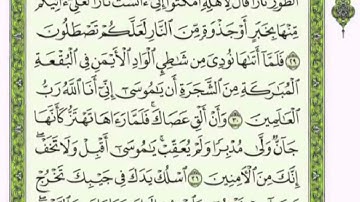 الطور نارا قال لأهله امكثوا إني ءانست نارا لعلي ءاتيكم
مِّنْهَا بِخَبَرٍ أَوْ جَذْوَةٍ مِّنَ ٱلنَّارِ لَعَلَّكُمْ تَصْطَلُونَ
٢٩ فَلَمَّآ أَتَىٰهَا نُودِىَ مِن شَٰطِئِ ٱلْوَادِ ٱلْأَيْمَنِ فِى ٱلْبُقْعَةِ
ٱلْمُبَٰرَكَةِ مِنَ ٱلشَّجَرَةِ أَن يَٰمُوسَىٰٓ إِنِّىٓ أَنَا ٱللَّهُ رَبُّ
ٱلْعَٰلَمِينَ ٣٠ وَأَنْ أَلْقِ عَصَاكَ فَلَمَّا رَءَاهَا تَهْتَزُّ كَأَنَّهَا
جَآنٌّ وَلَّىٰ مُدْبِرًا وَلَمْ يُعَقِّبْ يَٰمُوسَىٰٓ أَقْبِلْ وَلَا تَخَفْ
إِنَّكَ مِنَ ٱلْءَامِنِينَ ٣١ ٱسْلُكْ يَدَكَ فِى جَيْبِكَ تَخْرُجْ